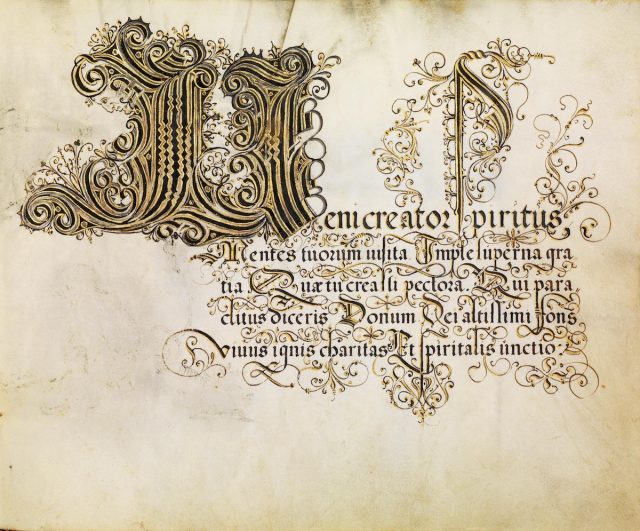 Veni creator Spiritus
Mentes tuorum visita Imple superna gra
tia Quæ tu creasti pectora. Qui para
clitus diceris Donum Dei altissimi fons
Vivus ignis charitas Et spiritalis unctio: